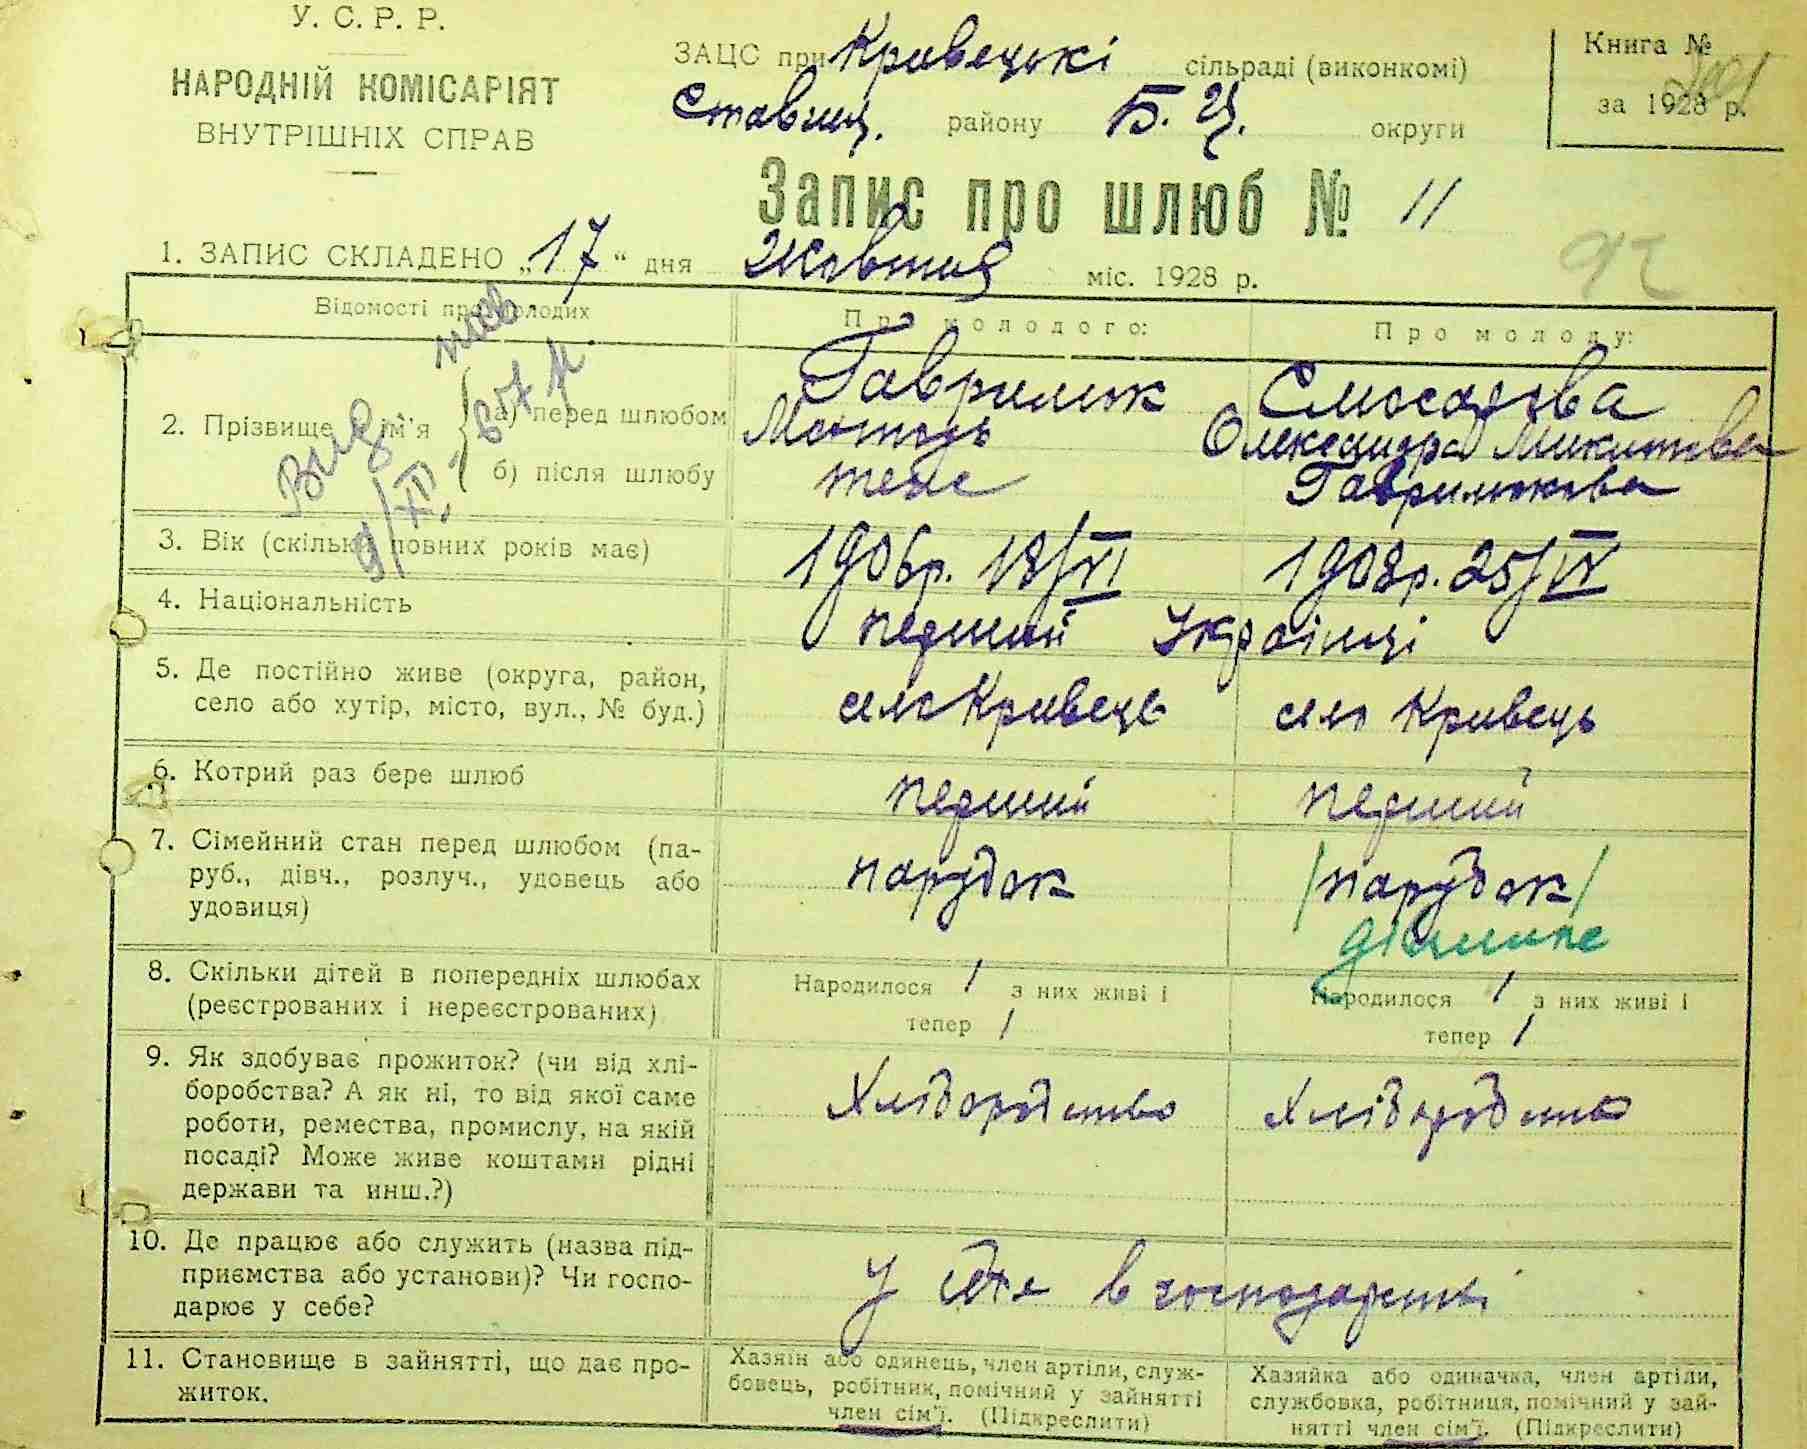 У. С. Р. Р.
НАРОДНІЙ КОМІСАРІЯТ
ВНУТРІШНІХ СПРАВ
ЗАЦС при Кривецькі сільраді (виконкомі)
Ставищ. району Б. Ц. округи
Книга №
за 1928 р.
Запис про шлюб № 11
92
1. ЗАПИС СКЛАДЕНО „17“ дня Жовтня міс. 1928 р.
Відомості про молодих
Про молодого:
Про молоду:
2. Прізвище ім'я
а) перед шлюбом
Гаврилюк
Слюсарова
Олександра Микитова
б) після шлюбу
теж
Гаврилюкова
Вид
9/XII
3. Вік (скільки повних років має)
1906р. 18/VI
1908р. 25/IV
4. Національність
перший Українці
5. Де постійно живе (округа, район,
село або хутір, місто, вул., № буд.)
село Кривець
село Кривець
6. Котрий раз бере шлюб
перший
перший
7. Сімейний стан перед шлюбом (па-
руб., дівч., розлуч., удовець або
удовиця)
парубок
/парубок/
8. Скільки дітей в попередніх шлюбах
(реєстрованих і нереєстрованих)
Народилося / з них живі і
тепер /
Народилося / з них живі і
тепер /
9. Як здобуває прожиток? (чи від хлі-
боробства? А як ні, то від якої саме
роботи, ремества, промислу, на якій
посаді? Може живе коштами рідні
держави та инш.?)
Хліборобство
Хліборобство
10. Де працює або служить (назва під-
приємства або установи)? Чи госпо-
дарює у себе?
У себе в господарстві
11. Становище в зайнятті, що дає про-
житок.
Хазяїн або одинець, член артіли, служ-
бовець, робітник, помічний у зайнятті
член сім'ї. (Підкреслити)
Хазяйка або одиначка, член артіли,
службовка, робітниця, помічний у зай-
нятті член сім'ї. (Підкреслити)